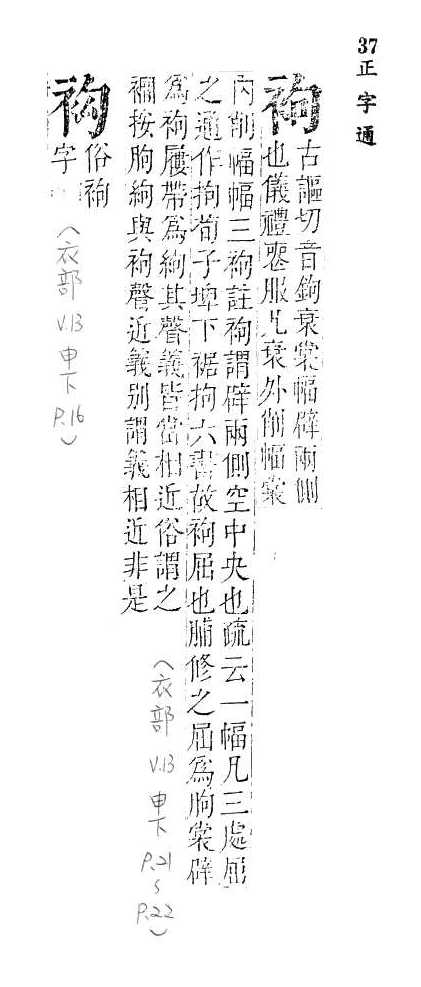 37正字通
袧
古謳切音鉤衰裳幅辟兩側
也儀禮喪服凡衰外削幅裳
內削幅幅三袧註袧謂辟兩側空中央也疏云一幅凡三處屈
之通作拘荀子埤下裾拘六書故袧屈也脯修之屈爲朐裳辟
爲袧屨帶爲絇其聲義皆當相近俗謂之
襉按朐絇與袧聲近義别謂義相近非是
(衣部 V.13 申下 P.21~P.22)
俗袧
字
(衣部 V.13 申下 P.16)